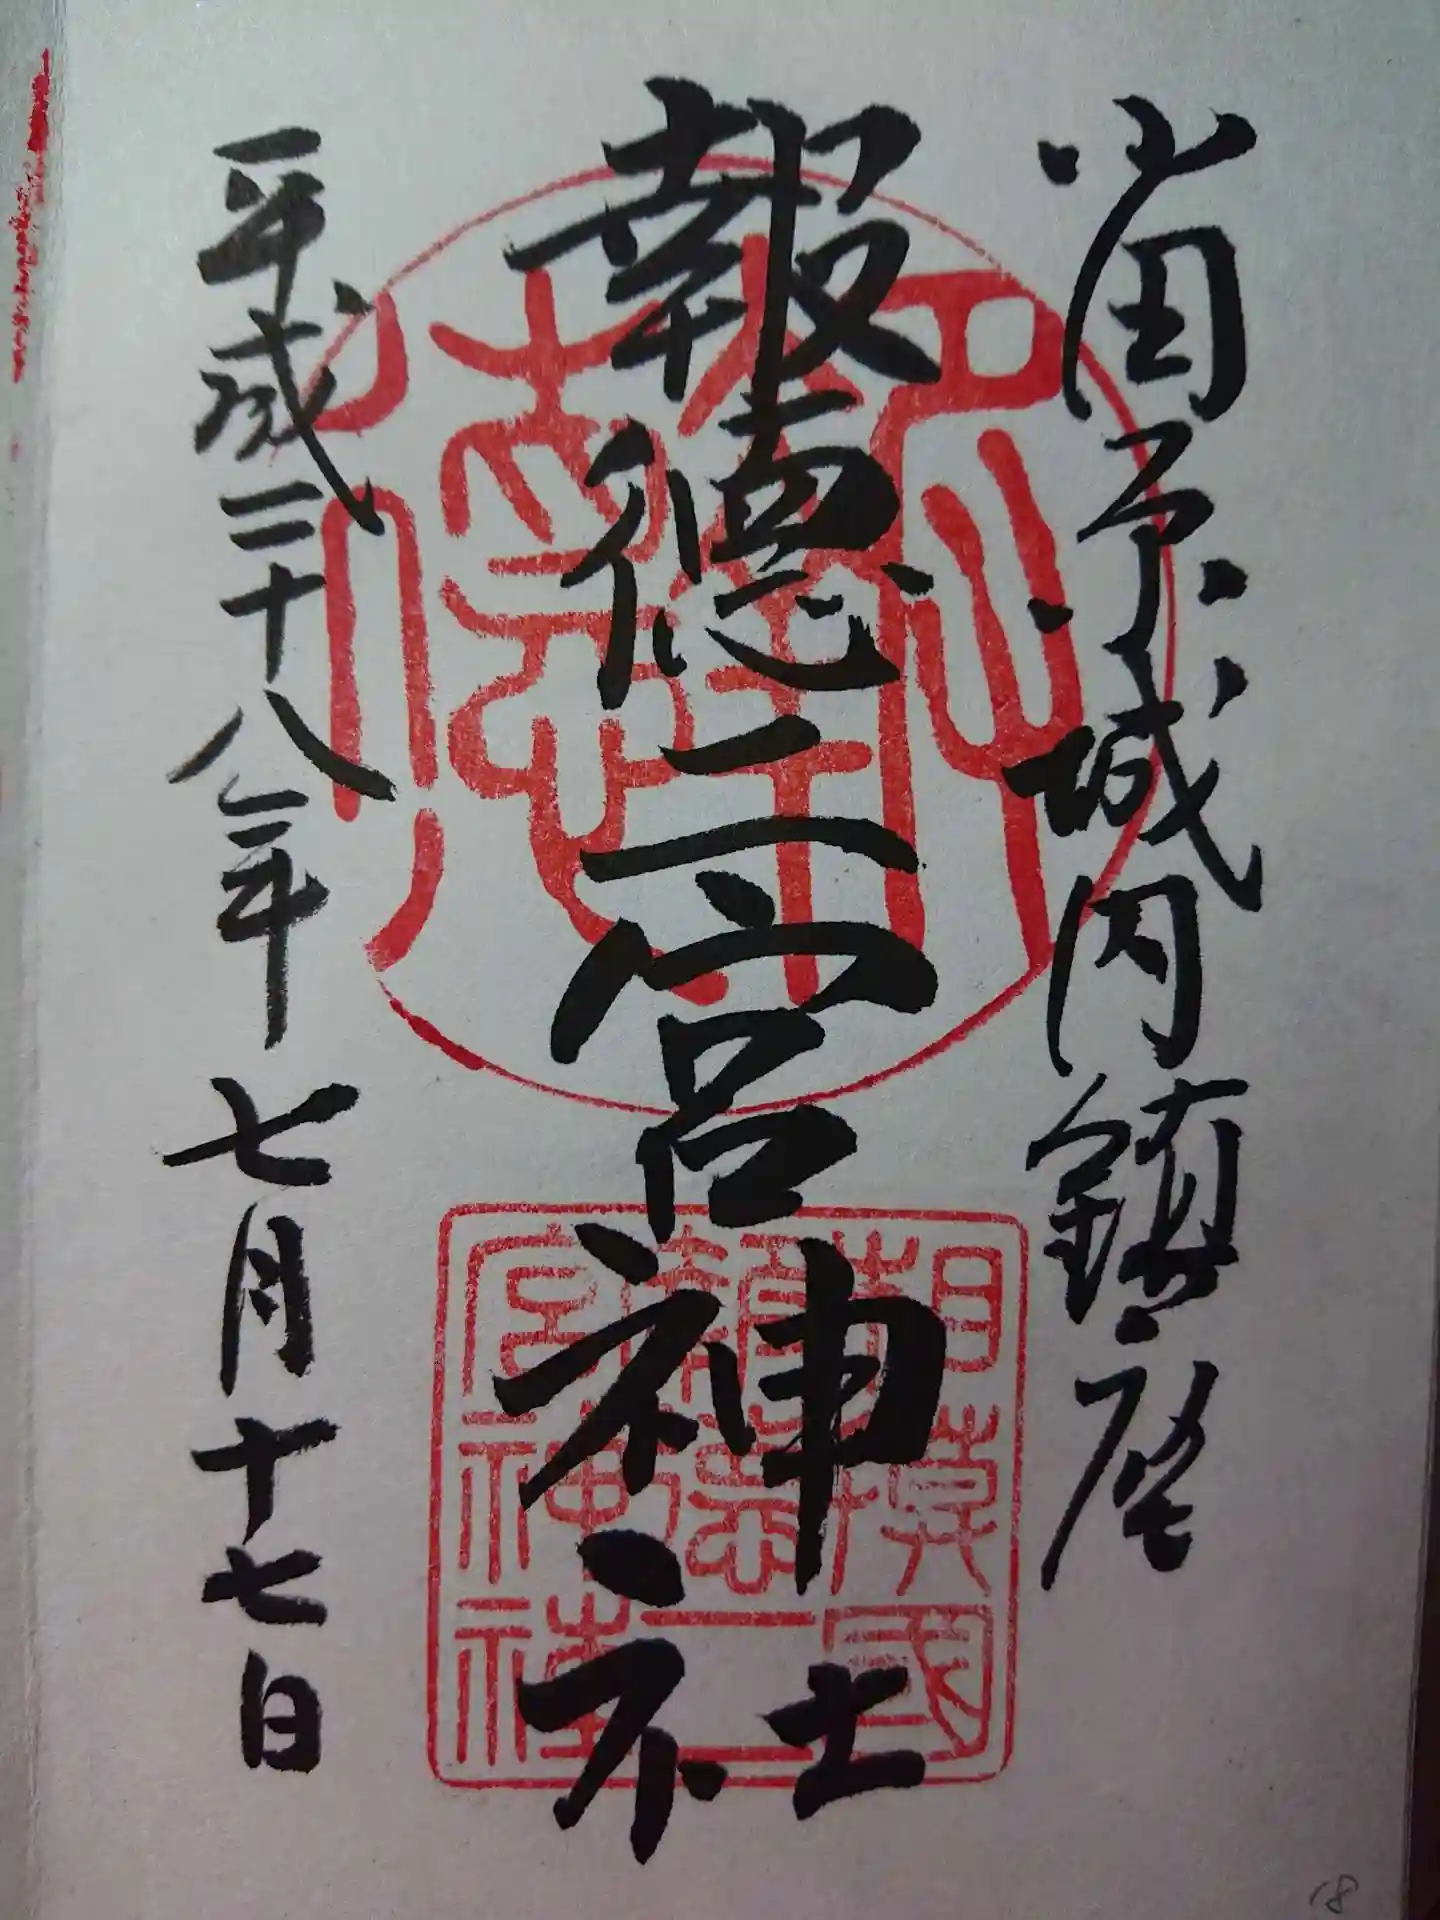 小田原城内鎮座
報徳二宮神社
平成二十八年七月十七日
相模國
報徳二
宮神社
18